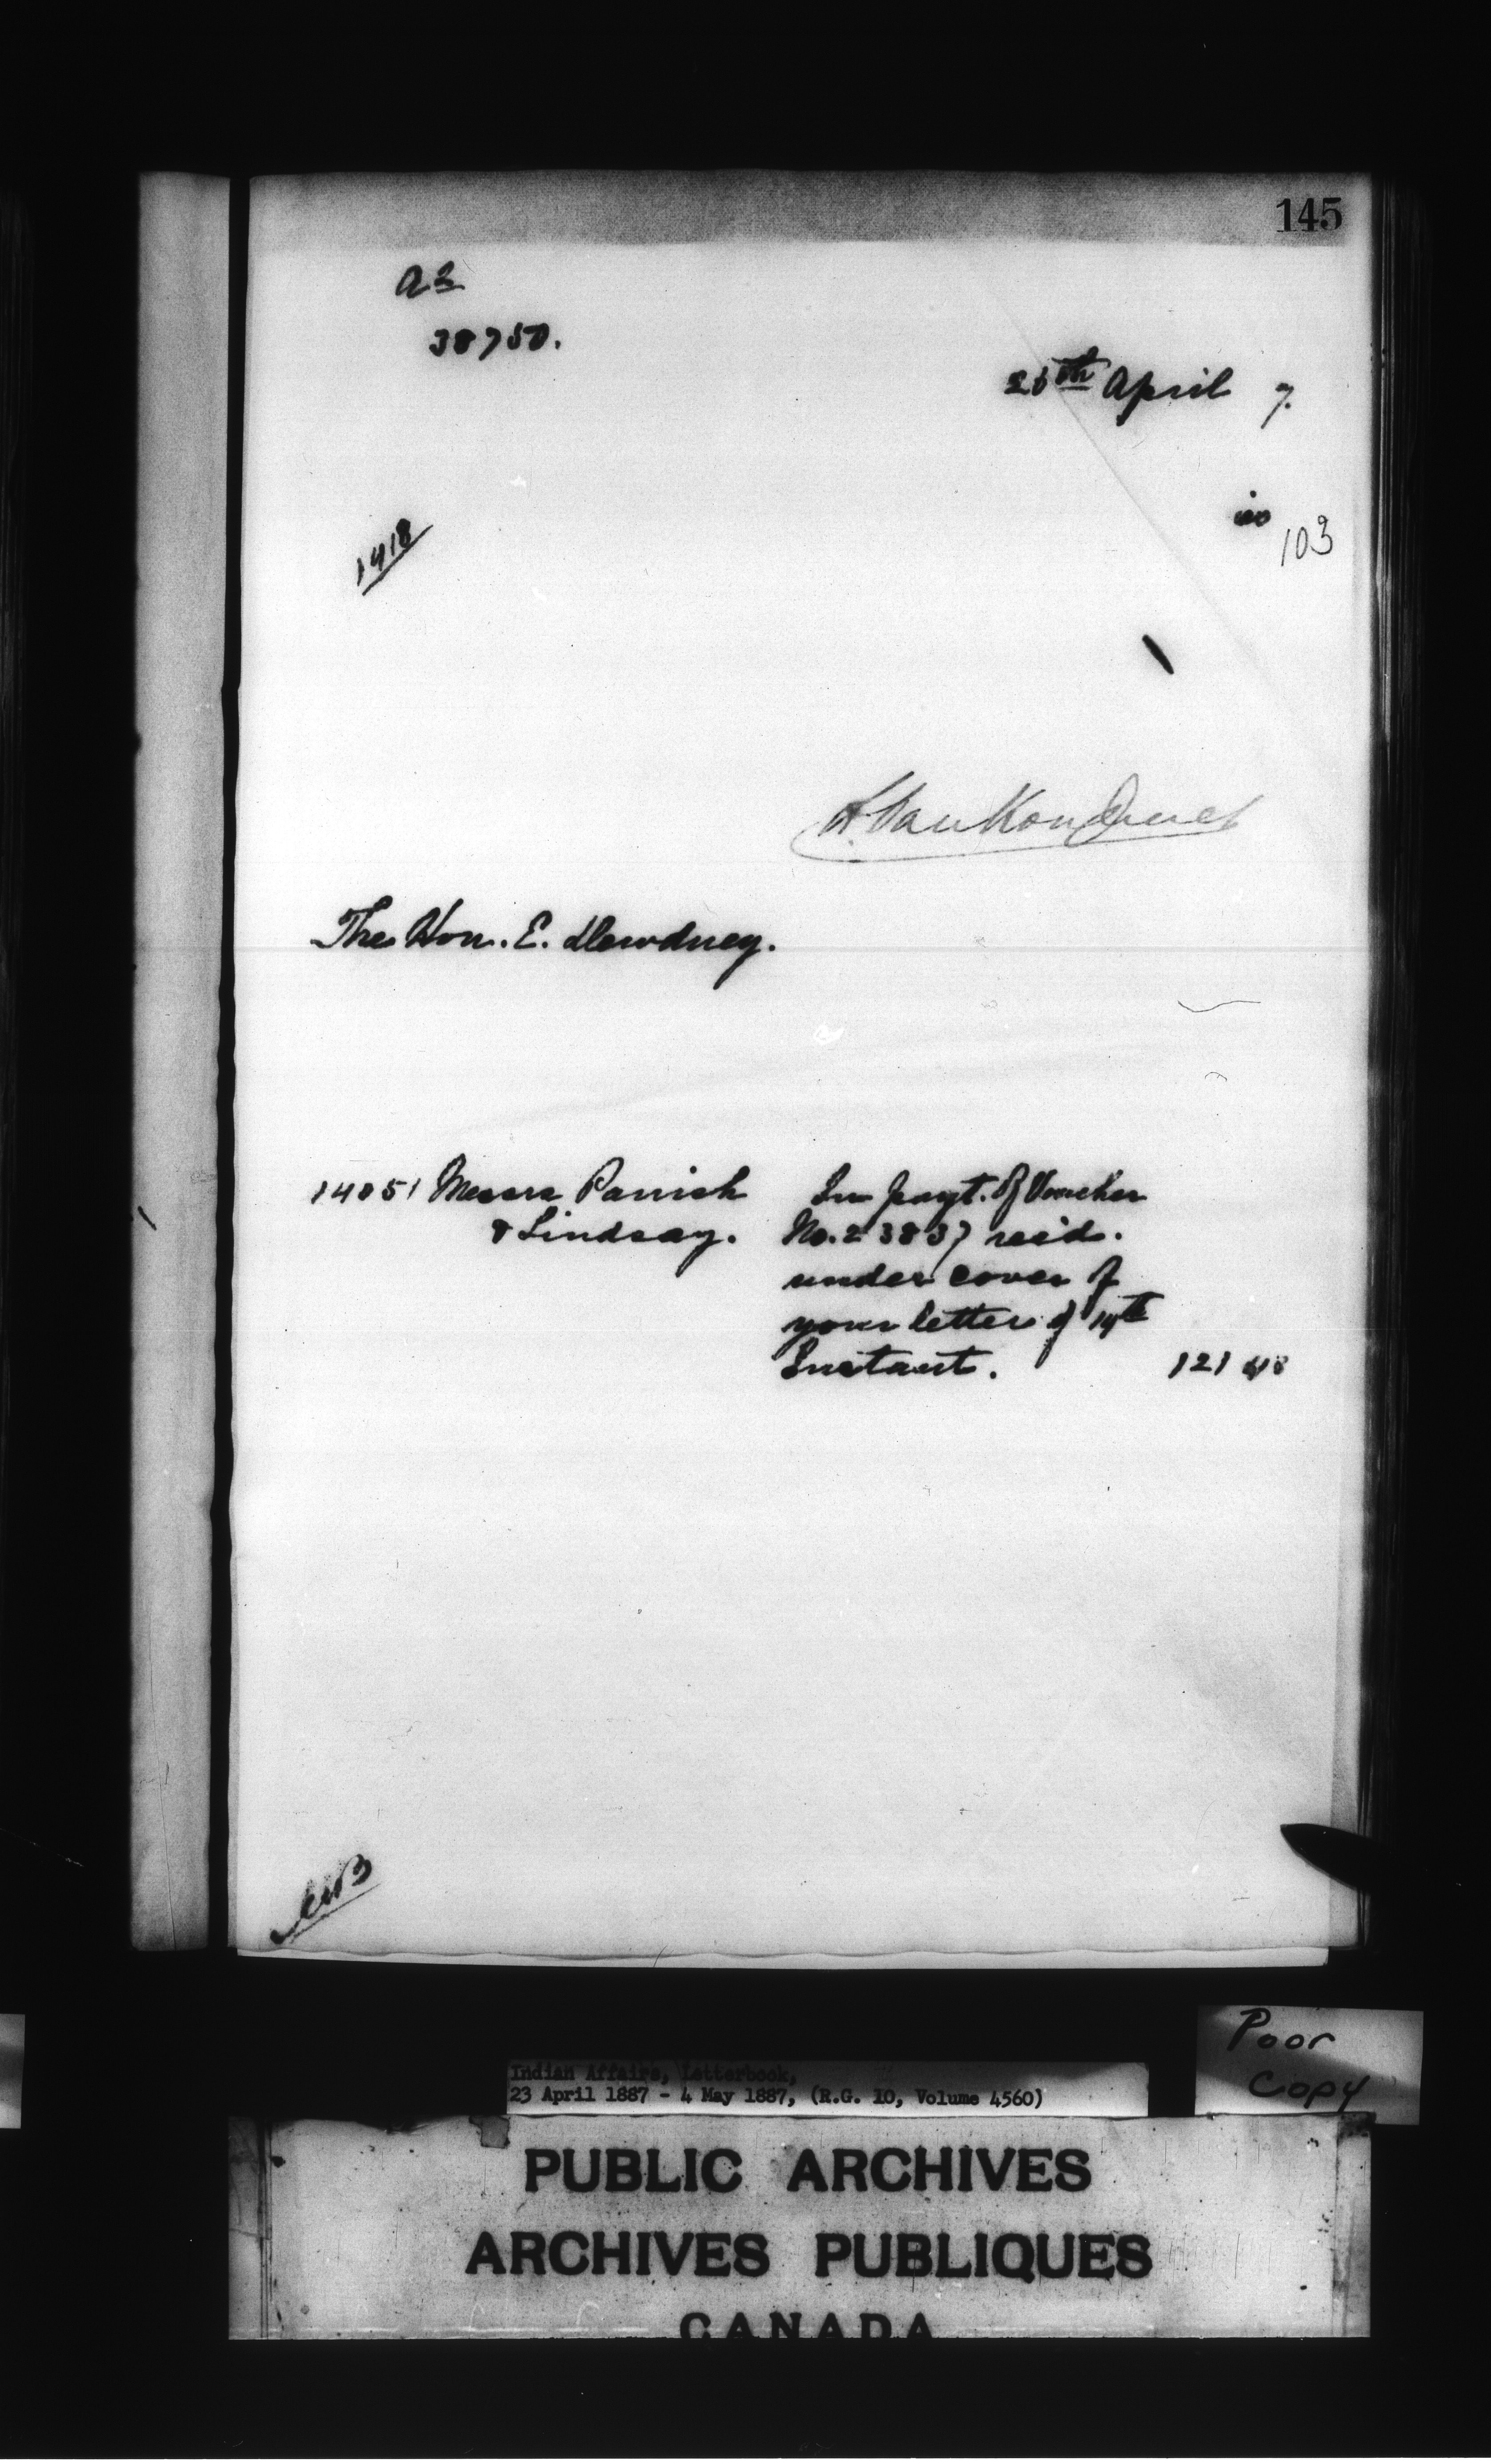 145
a 2
38750.
26th April 7.
in
103
1418
L. VanKoughnet
The Hon. E. Dewdney.
14851 Messrs Parrish
& Lindsay.
In payt. of Voucher
No. 23837 recd.
under cover of
your letter of 14th
Instant. 121 48
Poor
Copy
Indian Affairs, Letterbook,
23 April 1887 - 4 May 1887, (R.G. 10, Volume 4560)
PUBLIC ARCHIVES
ARCHIVES PUBLIQUES
CANADA